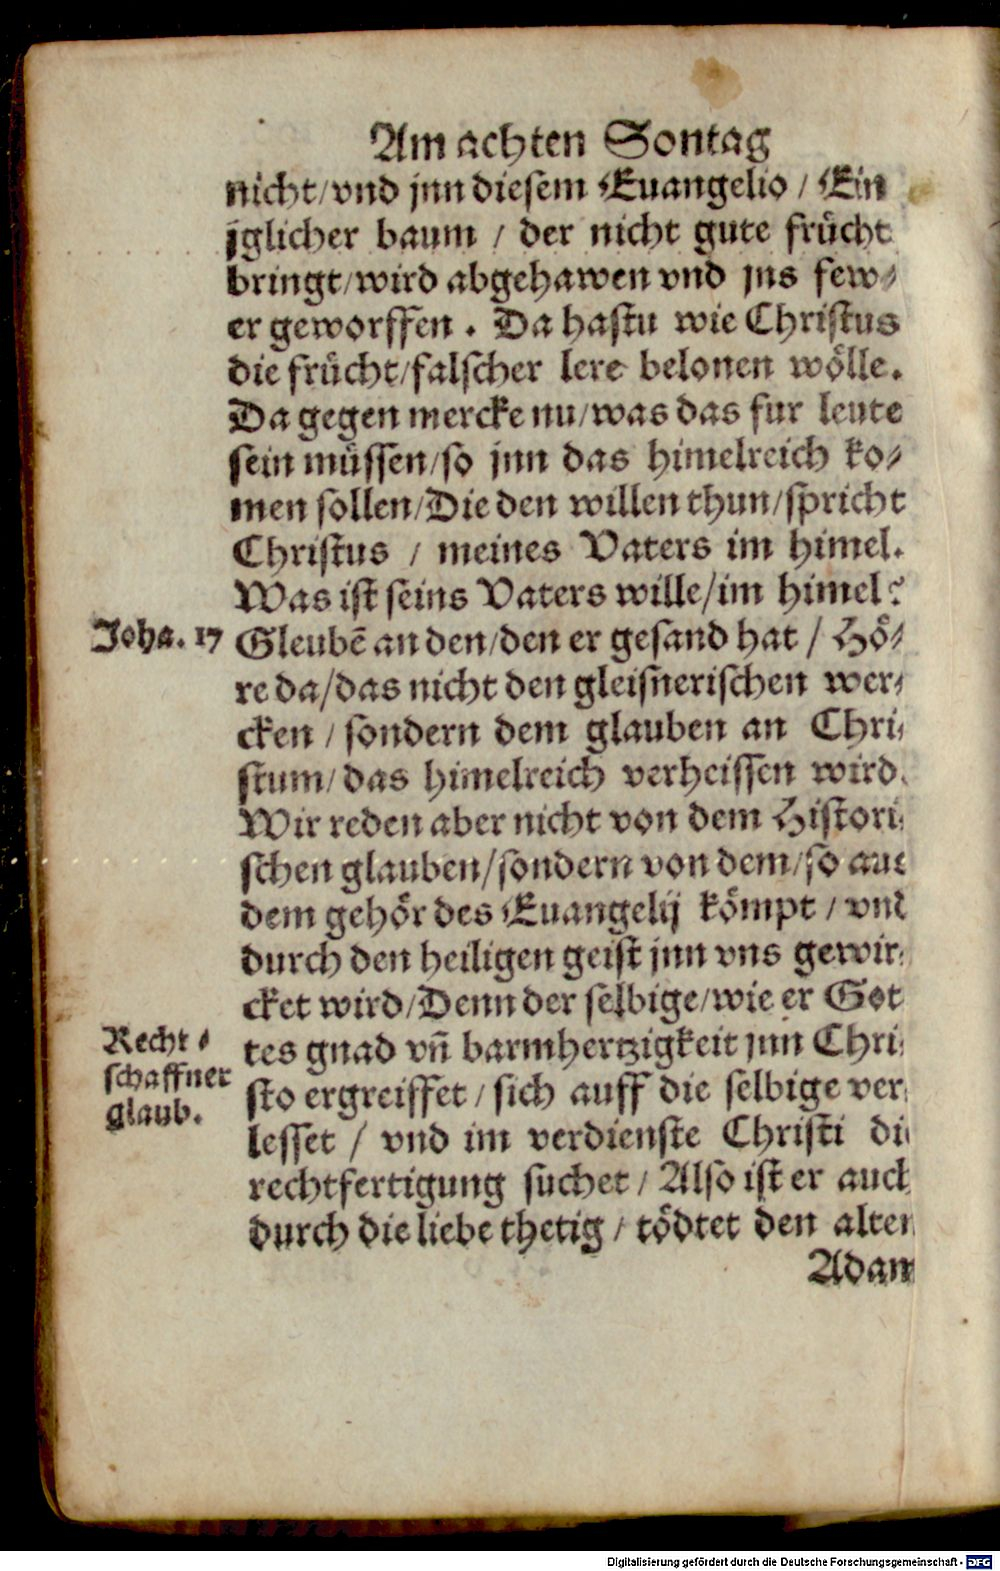 Am achten Sontag
nicht/vnd jnn diesem Euangelio / Ein
jglicher baum / der nicht gute frücht
bringt/wird abgehawen vnd jns few⸗
er geworffen . Da hastu wie Christus
die frücht/falscher lere belonen wölle.
Da gegen mercke nu/was das fur leute
sein müssen/so jnn das himelreich ko⸗
men sollen/Die den willen thun/spricht
Christus / meines Vaters im himel.
Was ist seins Vaters wille/im himel?
Joha. 17
Gleubē an den/den er gesand hat / Hö⸗
re da/das nicht den gleisnerischen wer⸗
cken / sondern dem glauben an Chri⸗
stum/das himelreich verheissen wird.
Wir reden aber nicht von dem Histori⸗
schen glauben/sondern von dem/so aus
dem gehör des Euangelij kömpt / vnd
durch den heiligen geist jnn vns gewir⸗
cket wird/Denn der selbige/wie er Got
Recht⸗
schaffner
glaub.
tes gnad vñ barmhertzigkeit jnn Chri⸗
sto ergreiffet / sich auff die selbige ver⸗
lesset / vnd im verdienste Christi die
rechtfertigung suchet / Also ist er auch
durch die liebe thetig / tödtet den alten
Adam
Digitalisierung gefördert durch die Deutsche Forschungsgemeinschaft - DFG